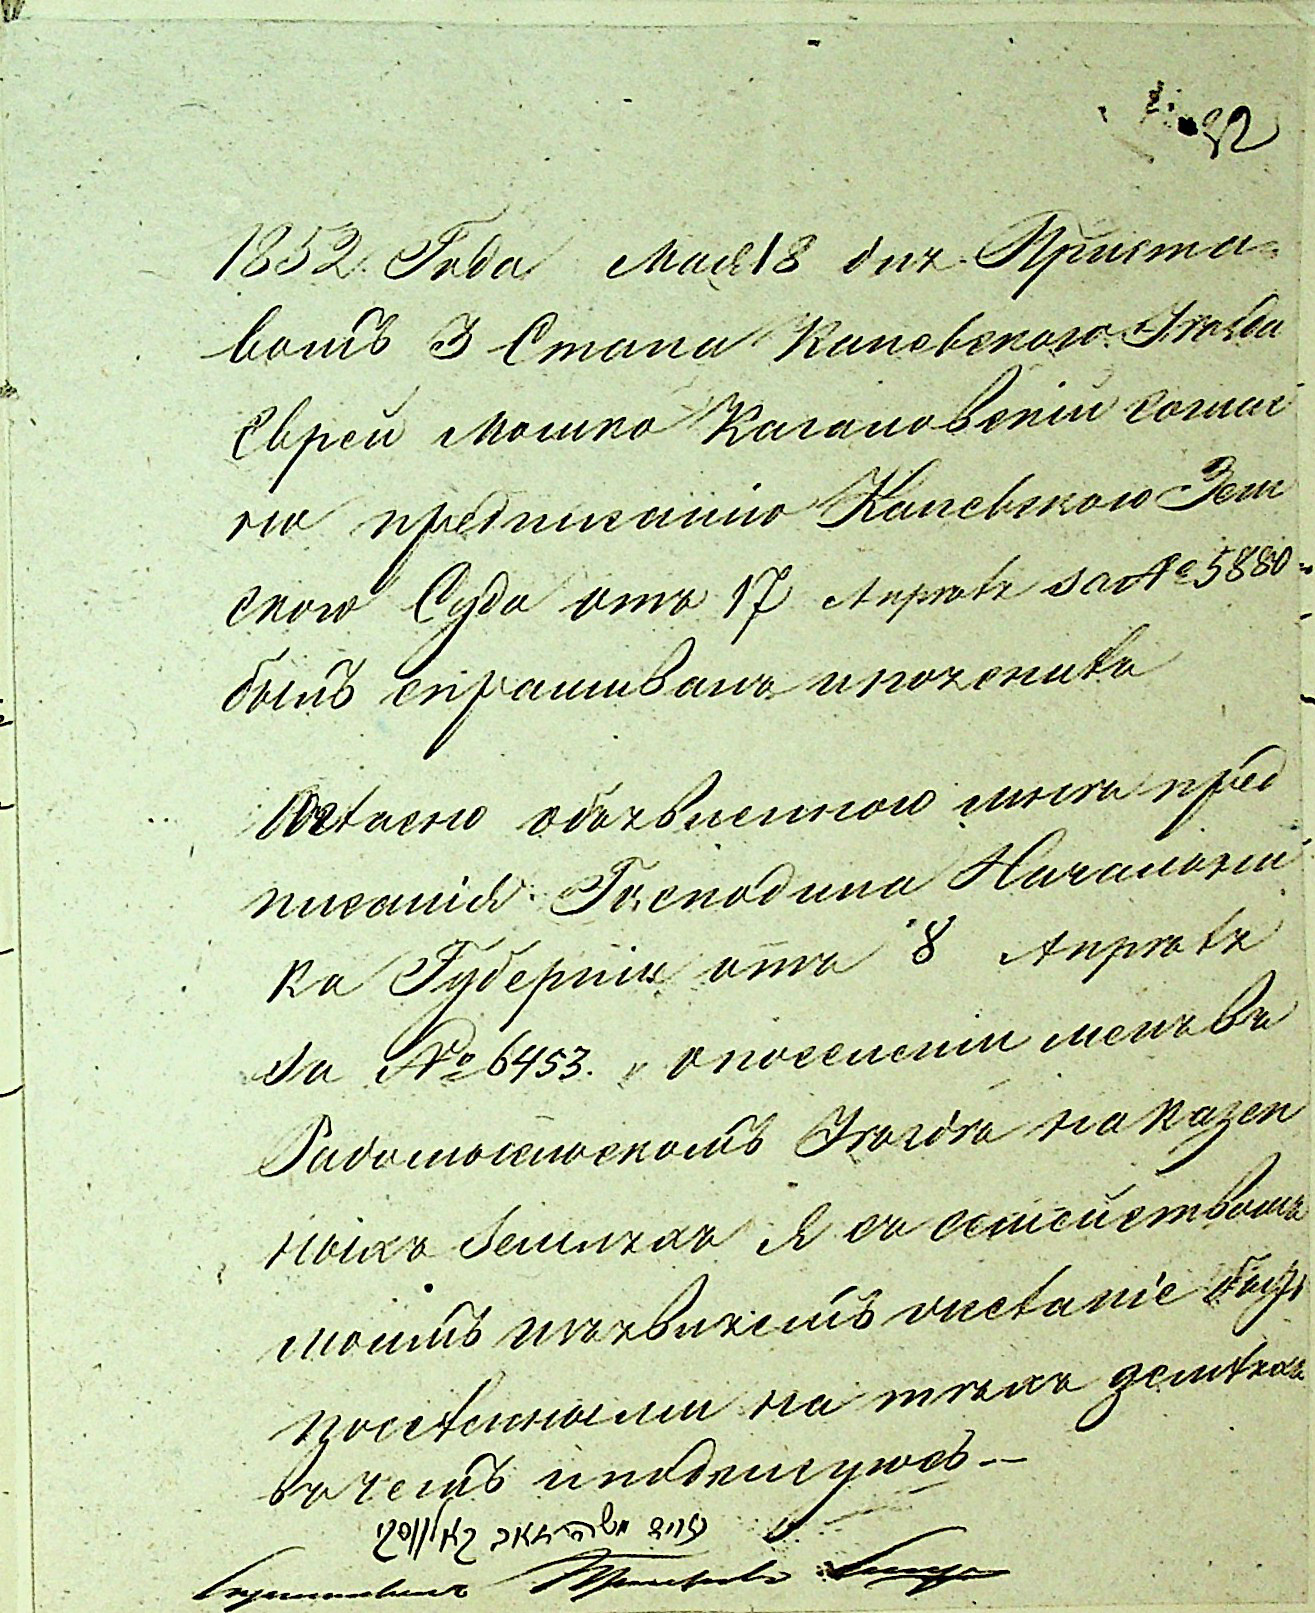 32
1852 Года Мая 18 дня Приста=
вомъ 3 Стана Каневского Уѣзда
Еврей Мошко Кагановскій соглас
но предписанію Каневского Зем
ского Суда отъ 17 Апрѣля за № 5880=
былъ спрашиванъ и показалъ
обявленного мнѣ пред
писанія Господина Начальни
ка Губерніи отъ 8 Апрѣля
за № 6453. о поселеніи меня въ
Радомысльскомъ Уѣздѣ на казен
ныхъ Земляхъ Я съ семействомъ
моимъ изъявляемъ желаніе быть
поселенными на тѣхъ земляхъ
въ чемъ и подписуюсь —